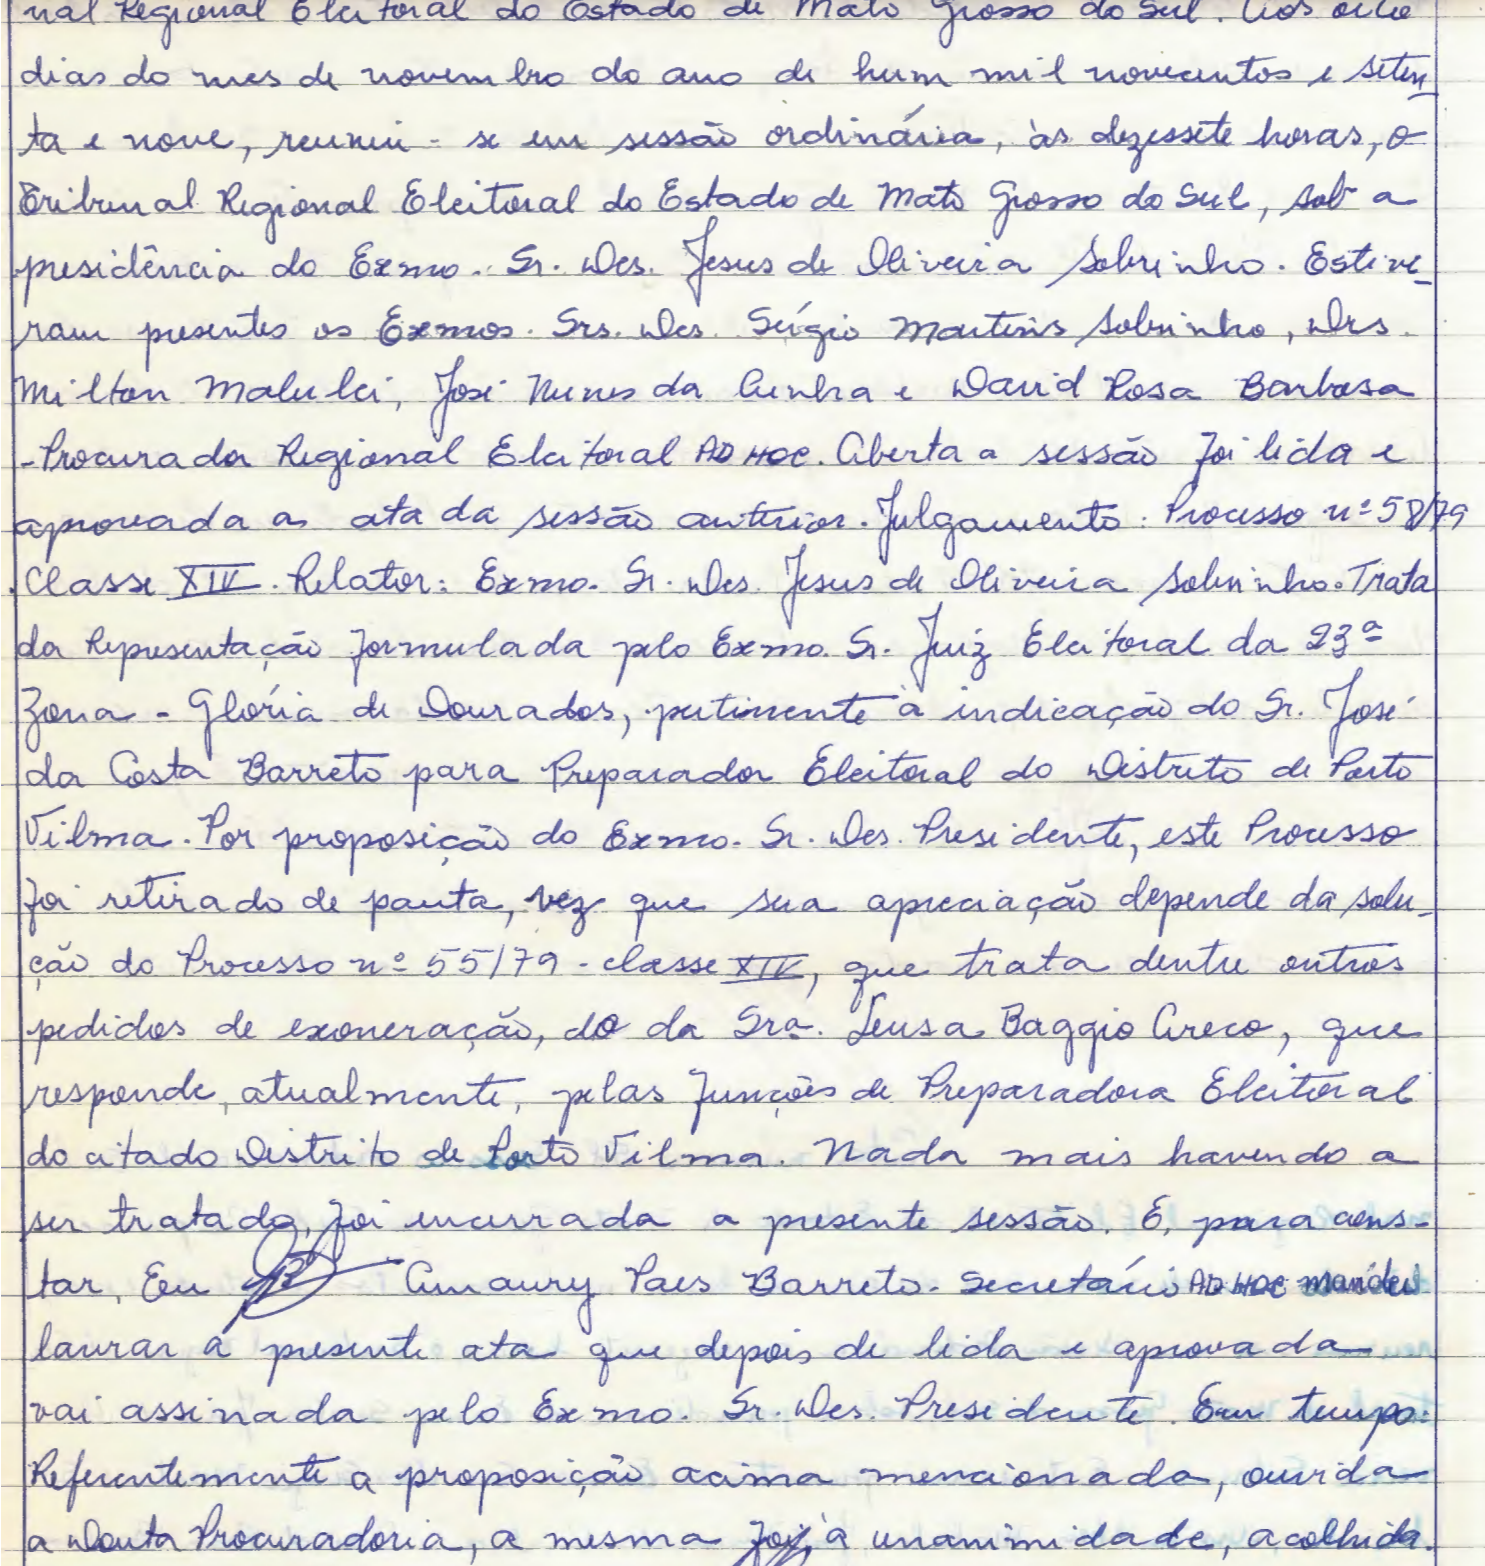 nal Regional Eleitoral do Estado de Mato Grosso do Sul. Aos oito
dias do mes de novembro do ano de hum mil novecentos e seten
ta e nove, reuniu-se em sessão ordinária, às dezessete horas, o
Tribunal Regional Eleitoral do Estado de Mato Grosso do Sul, sob a
presidência do Exmo. Sr. Des. Jesus de Oliveira Sobrinho. Estive-
ram presentes os Exmos. Srs. Des. Sérgio Martins Sobrinho, Drs.
Milton Malulei, José Nunes da Cunha e David Rosa Barbosa
-Procurador Regional Eleitoral AD HOC. Aberta a sessão foi lida e
aprovada a ata da sessão anterior. Julgamento: Processo nº 58/79
Classe XIV. Relator: Exmo. Sr. Des. Jesus de Oliveira Sobrinho. Trata
da Representação formulada pelo Exmo. Sr. Juiz Eleitoral da 23ª
Zona - Glória de Dourados, pertinente à indicação do Sr. José
da Costa Barreto para Preparador Eleitoral do Distrito de Porto
Vilma. Por proposição do Exmo. Sr. Des. Presidente, este Processo
foi retirado de pauta, vez que sua apreciação depende da solu-
ção do Processo nº 55/79 - classe XIV, que trata dentre outros
pedidos de exoneração, do da Sra. Leusa Baggio Greco, que
responde, atualmente, pelas funções de Preparadora Eleitoral
do citado Distrito de Porto Vilma. Nada mais havendo a
ser tratado, foi encerrada a presente sessão. E, para cons-
tar, Eu Amaury Paes Barreto. Secretário AD HOC mandei
lavrar a presente ata que depois de lida e aprovada
vai assinada pelo Exmo. Sr. Des. Presidente. Em tempo:
Referentemente a proposição acima mencionada, ouvida
a Douta Procuradoria, a mesma foi, à unanimidade, acolhida.